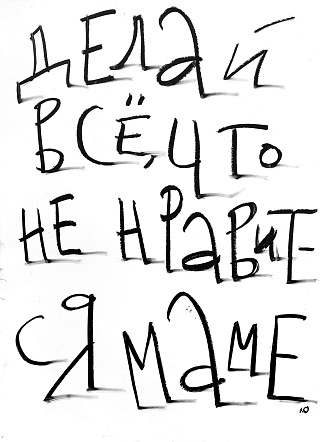 ДЕЛАЙ
ВСЁ, ЧТО
НЕ НРАВИТ-
СЯ МАМЕ